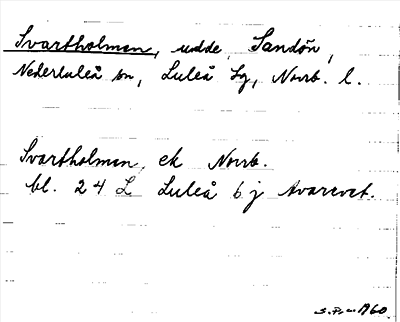 Svartholmen, udde, Sandön,
Nederluleå sn, Luleå lg, Norrb. l.
Svartholmen, ek Norrb.
bl. 24 L Luleå 6 j Avarevet.
1960